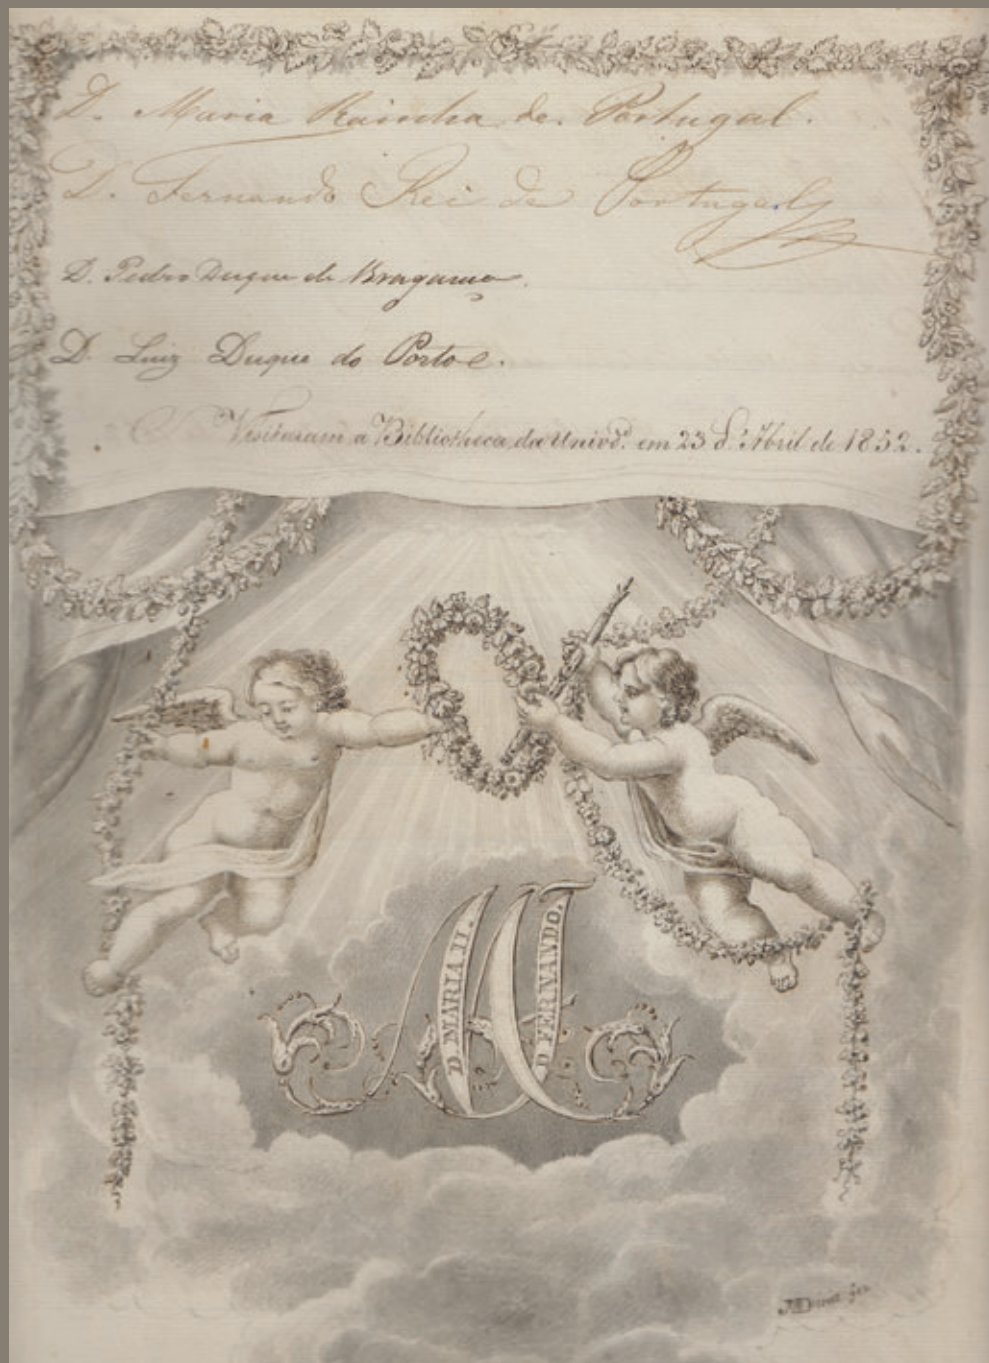 D. Maria Rainha de Portugal.
D. Fernando Rei de Portugal
D. Pedro Duque de Bragança.
D. Luiz Duque do Porto e.
Visitaram a Bibliotheca da Univd.e em 23 d'Abril de 1852.
D. MARIA II.
D. FERNANDO.